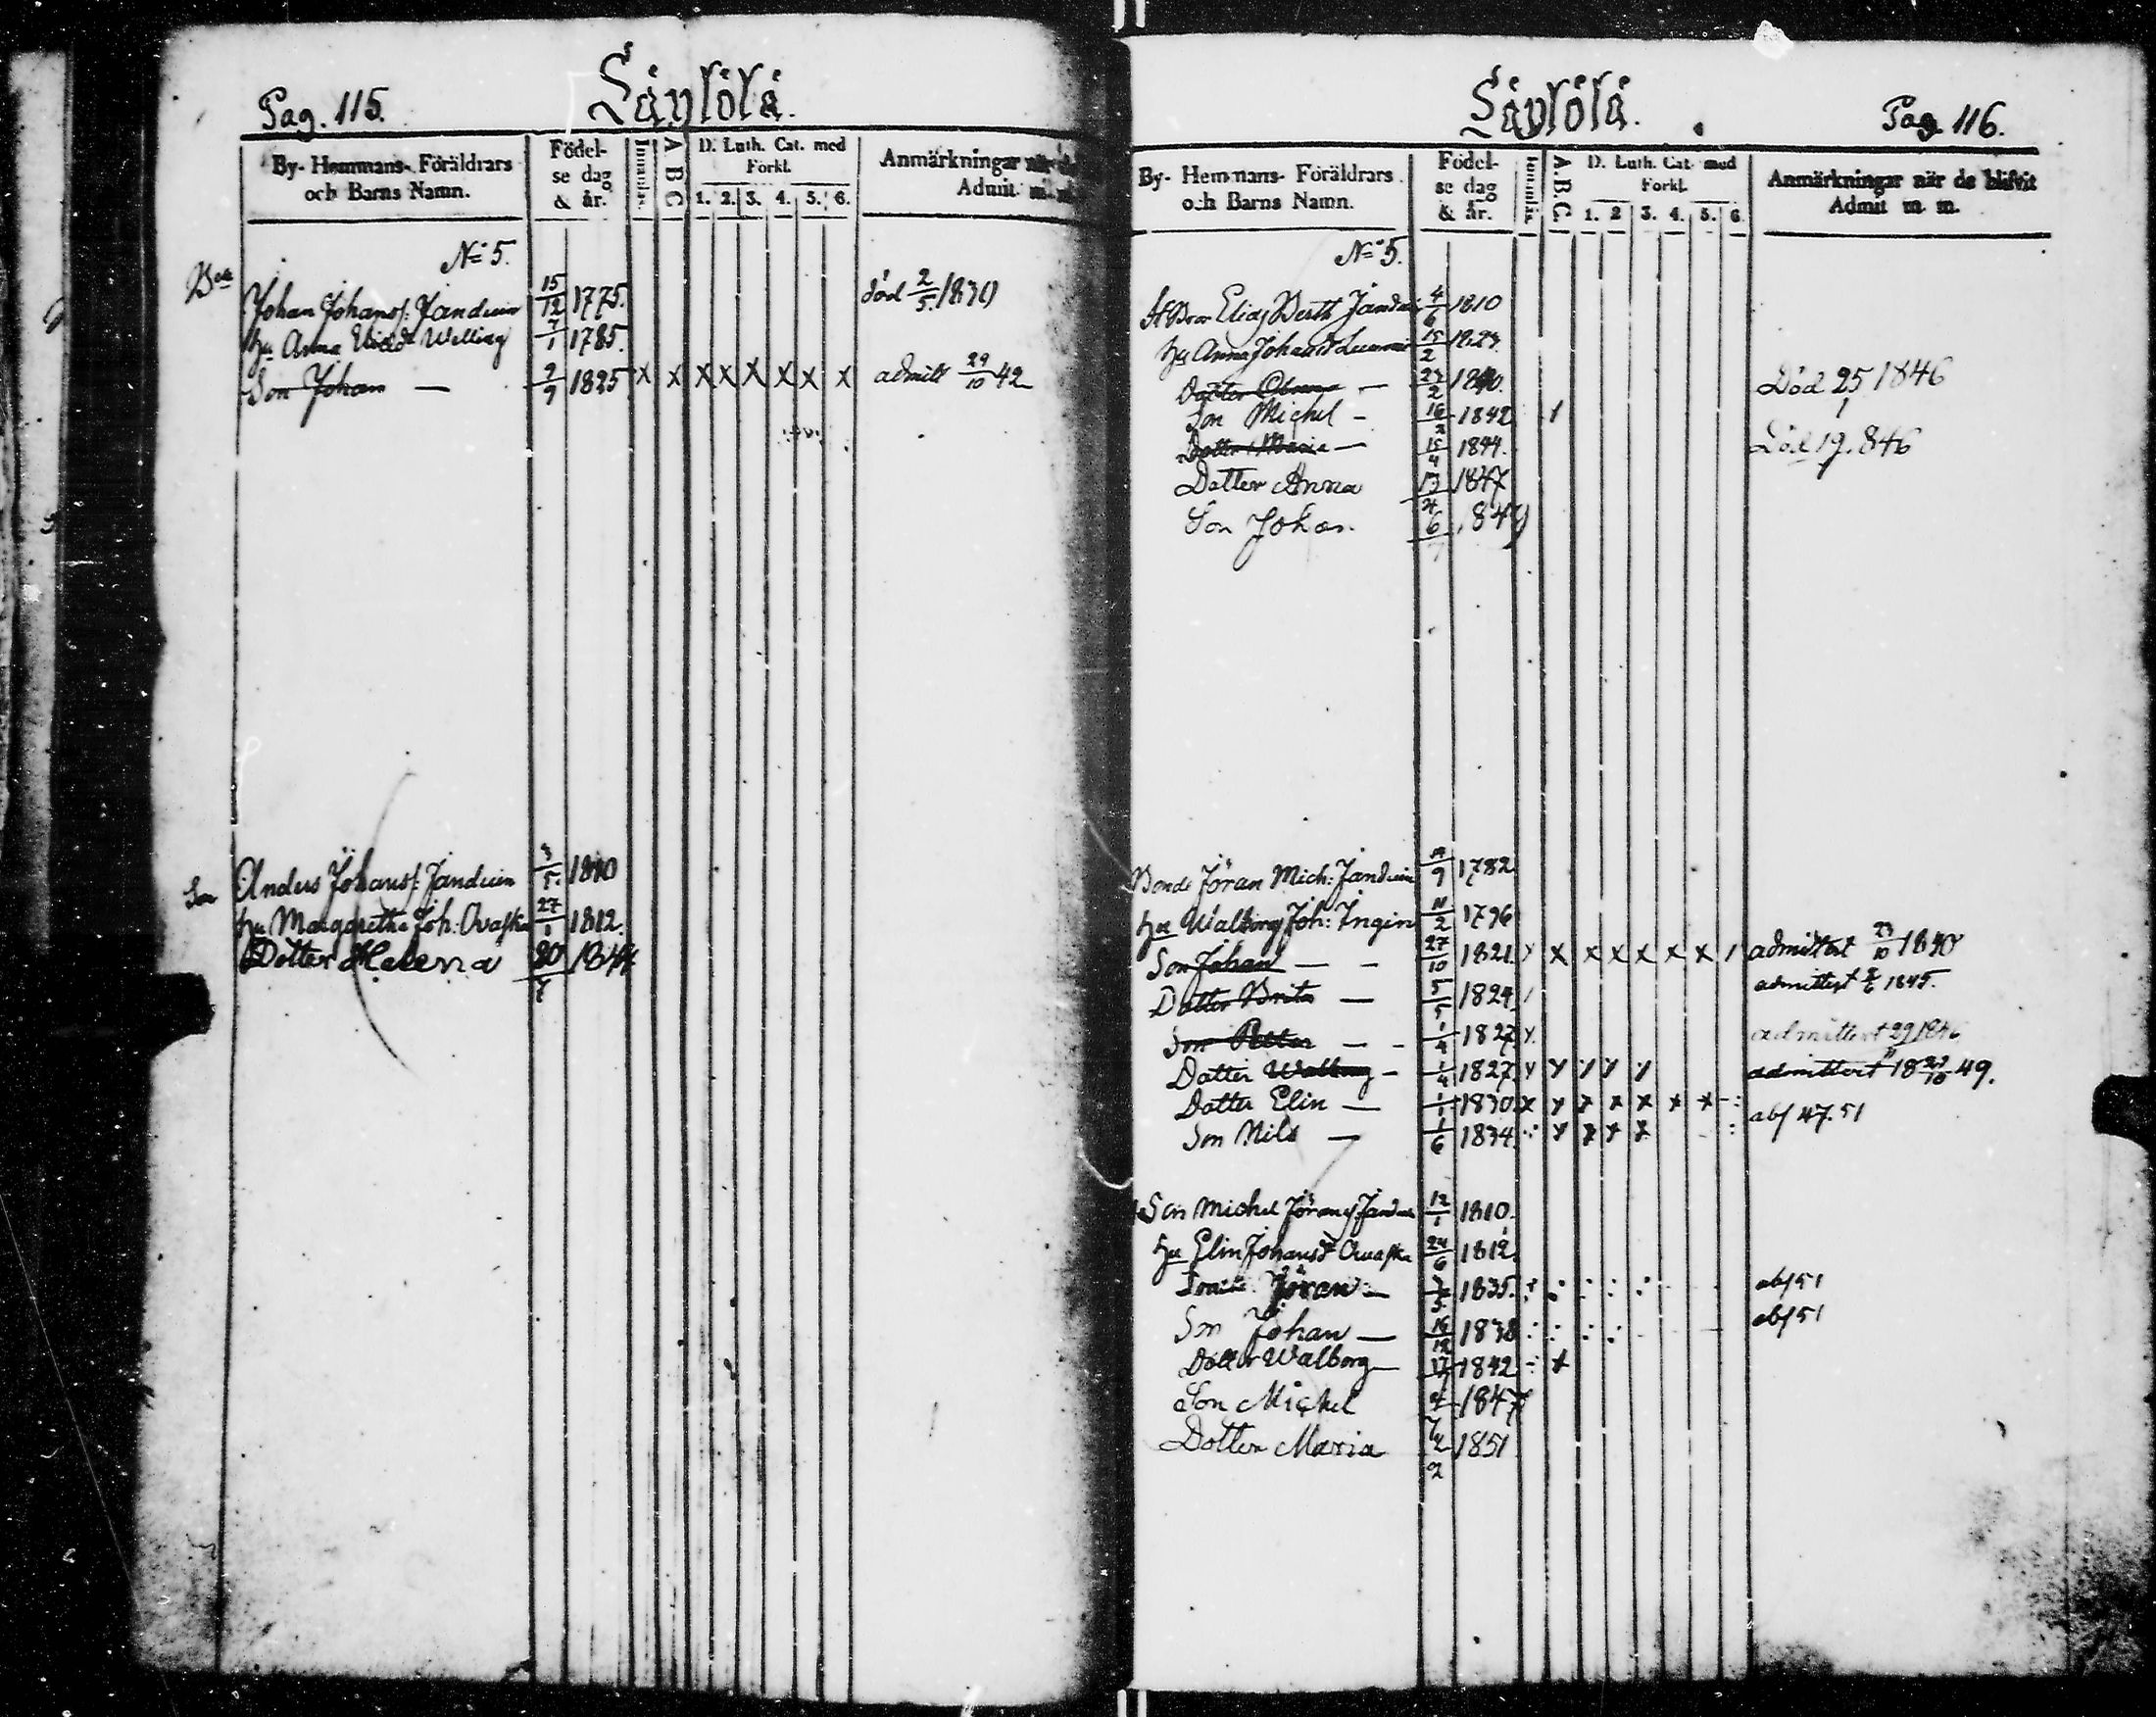 Pag. 115.
Säylölä.
By- Hemmans- Föräldrars och Barns Namn.
Födel- se dag & år.
Innanläs.
A B C
D. Luth. Cat. med Förkl.
1. 2. 3. 4. 5. 6.
Anmärkningar Admit.
No 5.
Johan Johansf: Jandunin 15/12 1775. död 2/5. 1839
Hu Anna Welling 7/1 1785.
Son Johan — 2/9 1825 x x x x x x x x admitt 29/10 42
Son Anders Johansf: Jandunin 3/5. 1810
Hu Margaretha Joh: Ovaska 27/1 1812.
Dotter Helena 20/7 1844
Säylölä.
Pag. 116.
By- Hemmans- Föräldrars och Barns Namn.
Födel- se dag & år.
Innanläs.
A.B.C.
D. Luth. Cat. med Förkl.
1. 2 3. 4. 5. 6.
Anmärkningar när de blifvit Admit m m.
No 5.
Elias Berth 4/6 1810
Hu Anna Johansdr 15/2
Dotter — 23/2 1840. Död 25/1 1846
Son Michel - 16/2 1842
Dotter Maria — 15/4 1844. Död 19. 846
Dotter Anna 13/4 1847
Son Johan. 6/7 1849
Bonde Jöran Mich: Jandunin 19/9 1782
Hu Walborg Joh: Ingin 11/2 1796
Son Johan — - 27/10 1821. x x x x x x x admittert 23/10 1840
Dotter Brita — 5/5 1824 admittert 1845.
Son Petter — - 1/4 1827 admittert 29 1846
Dotter Walborg - 1/4 1827. admittert 18 21/10 49.
Dotter Elin — 1/1 1830 x x x x x x x abs 47. 51
Son Nils — 1/6 1834
Son Michel Jöransf Jandun 12/1 1810.
Hu Elin Johansdr Ovaska 24/6 1812.
Jöran — 1835. abs 51
Son Johan — 16/12 1838 abs 51
Dotter Walborg — 1842
Son Michel 1847
Dotter Maria 1851